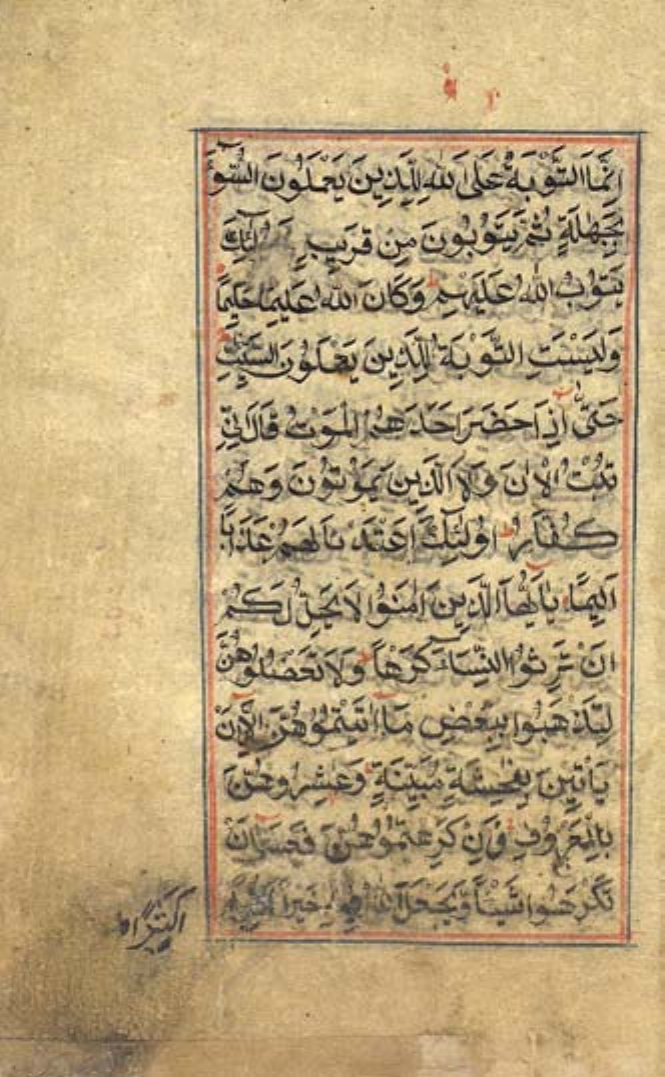 اِنَّمَا التَّوْبَةُ عَلَى اللهِ لِلَّذِينَ يَعْمَلُونَ السُّوٓءَ
بِجَهٰلَةٍ ثُمَّ يَتُوبُونَ مِنْ قَرِيبٍ
يَتُوبُ اللهُ عَلَيْهِمْ وَكَانَ اللهُ عَلِيمًا حَكِيمًا
وَلَيْسَتِ التَّوْبَةُ لِلَّذِينَ يَعْمَلُونَ السَّيِّاٰتِ
حَتّٰى اِذَا حَضَرَ اَحَدَهُمُ الْمَوْتُ قَالَ اِنِّي
تُبْتُ الْاٰنَ وَلَا الَّذِينَ يَمُوتُونَ وَهُمْ
كُفَّارٌ اُولٰٓئِكَ اَعْتَدْنَا لَهُمْ عَذَابًا
اَلِيمًا يٰٓاَيُّهَا الَّذِينَ اٰمَنُوا لَا يَحِلُّ لَكُمْ
اَنْ تَرِثُوا النِّسَآءَ كَرْهًا وَلَا تَعْضُلُوهُنَّ
لِتَذْهَبُوا بِبَعْضِ مَآ اٰتَيْتُمُوهُنَّ اِلَّآ اَنْ
يَاْتِينَ بِفٰحِشَةٍ مُبَيِّنَةٍ وَعَاشِرُوهُنَّ
بِالْمَعْرُوفِ فَاِنْ كَرِهْتُمُوهُنَّ فَعَسٰٓى اَنْ
تَكْرَهُوا شَيْئًا وَيَجْعَلَ اللهُ فِيهِ خَيْرًا